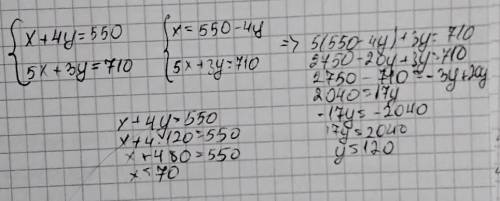 x+4y=550
5x+3y=710
x=550-4y
5x+3y=710
=> 5(550-4y)+3y=710
2750-20y+3y=710
2750-710=-3y+20y
2040=17y
-17y=-2040
17y=2040
y=120
x+4y=550
x+4·120=550
x+480=550
x=70